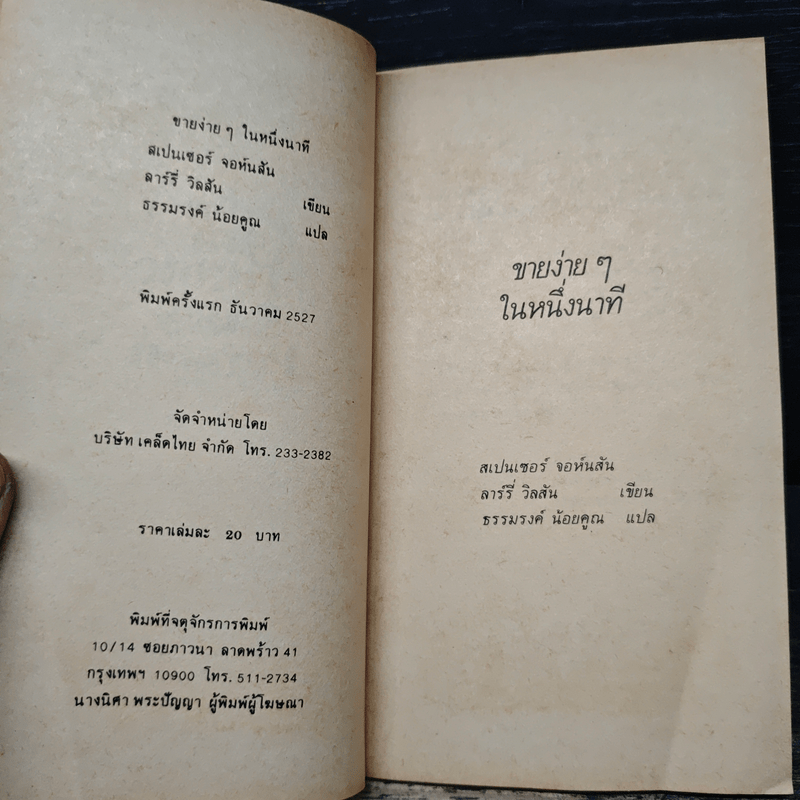 ขายง่าย ๆ ในหนึ่งนาที
สเปนเซอร์ จอห์นสัน
ลาร์รี่ วิลสัน เขียน
ธรรมรงค์ น้อยคูณ แปล
พิมพ์ครั้งแรก ธันวาคม 2527
จัดจำหน่ายโดย
บริษัท เคล็ดไทย จำกัด โทร. 233-2382
ราคาเล่มละ 20 บาท
พิมพ์ที่จตุจักรการพิมพ์
10/14 ซอยภาวนา ลาดพร้าว 41
กรุงเทพฯ 10900 โทร. 511-2734
นางนิศา พระปัญญา ผู้พิมพ์ผู้โฆษณา
ขายง่าย ๆ
ในหนึ่งนาที
สเปนเซอร์ จอห์นสัน
ลาร์รี่ วิลสัน เขียน
ธรรมรงค์ น้อยคูณ แปล